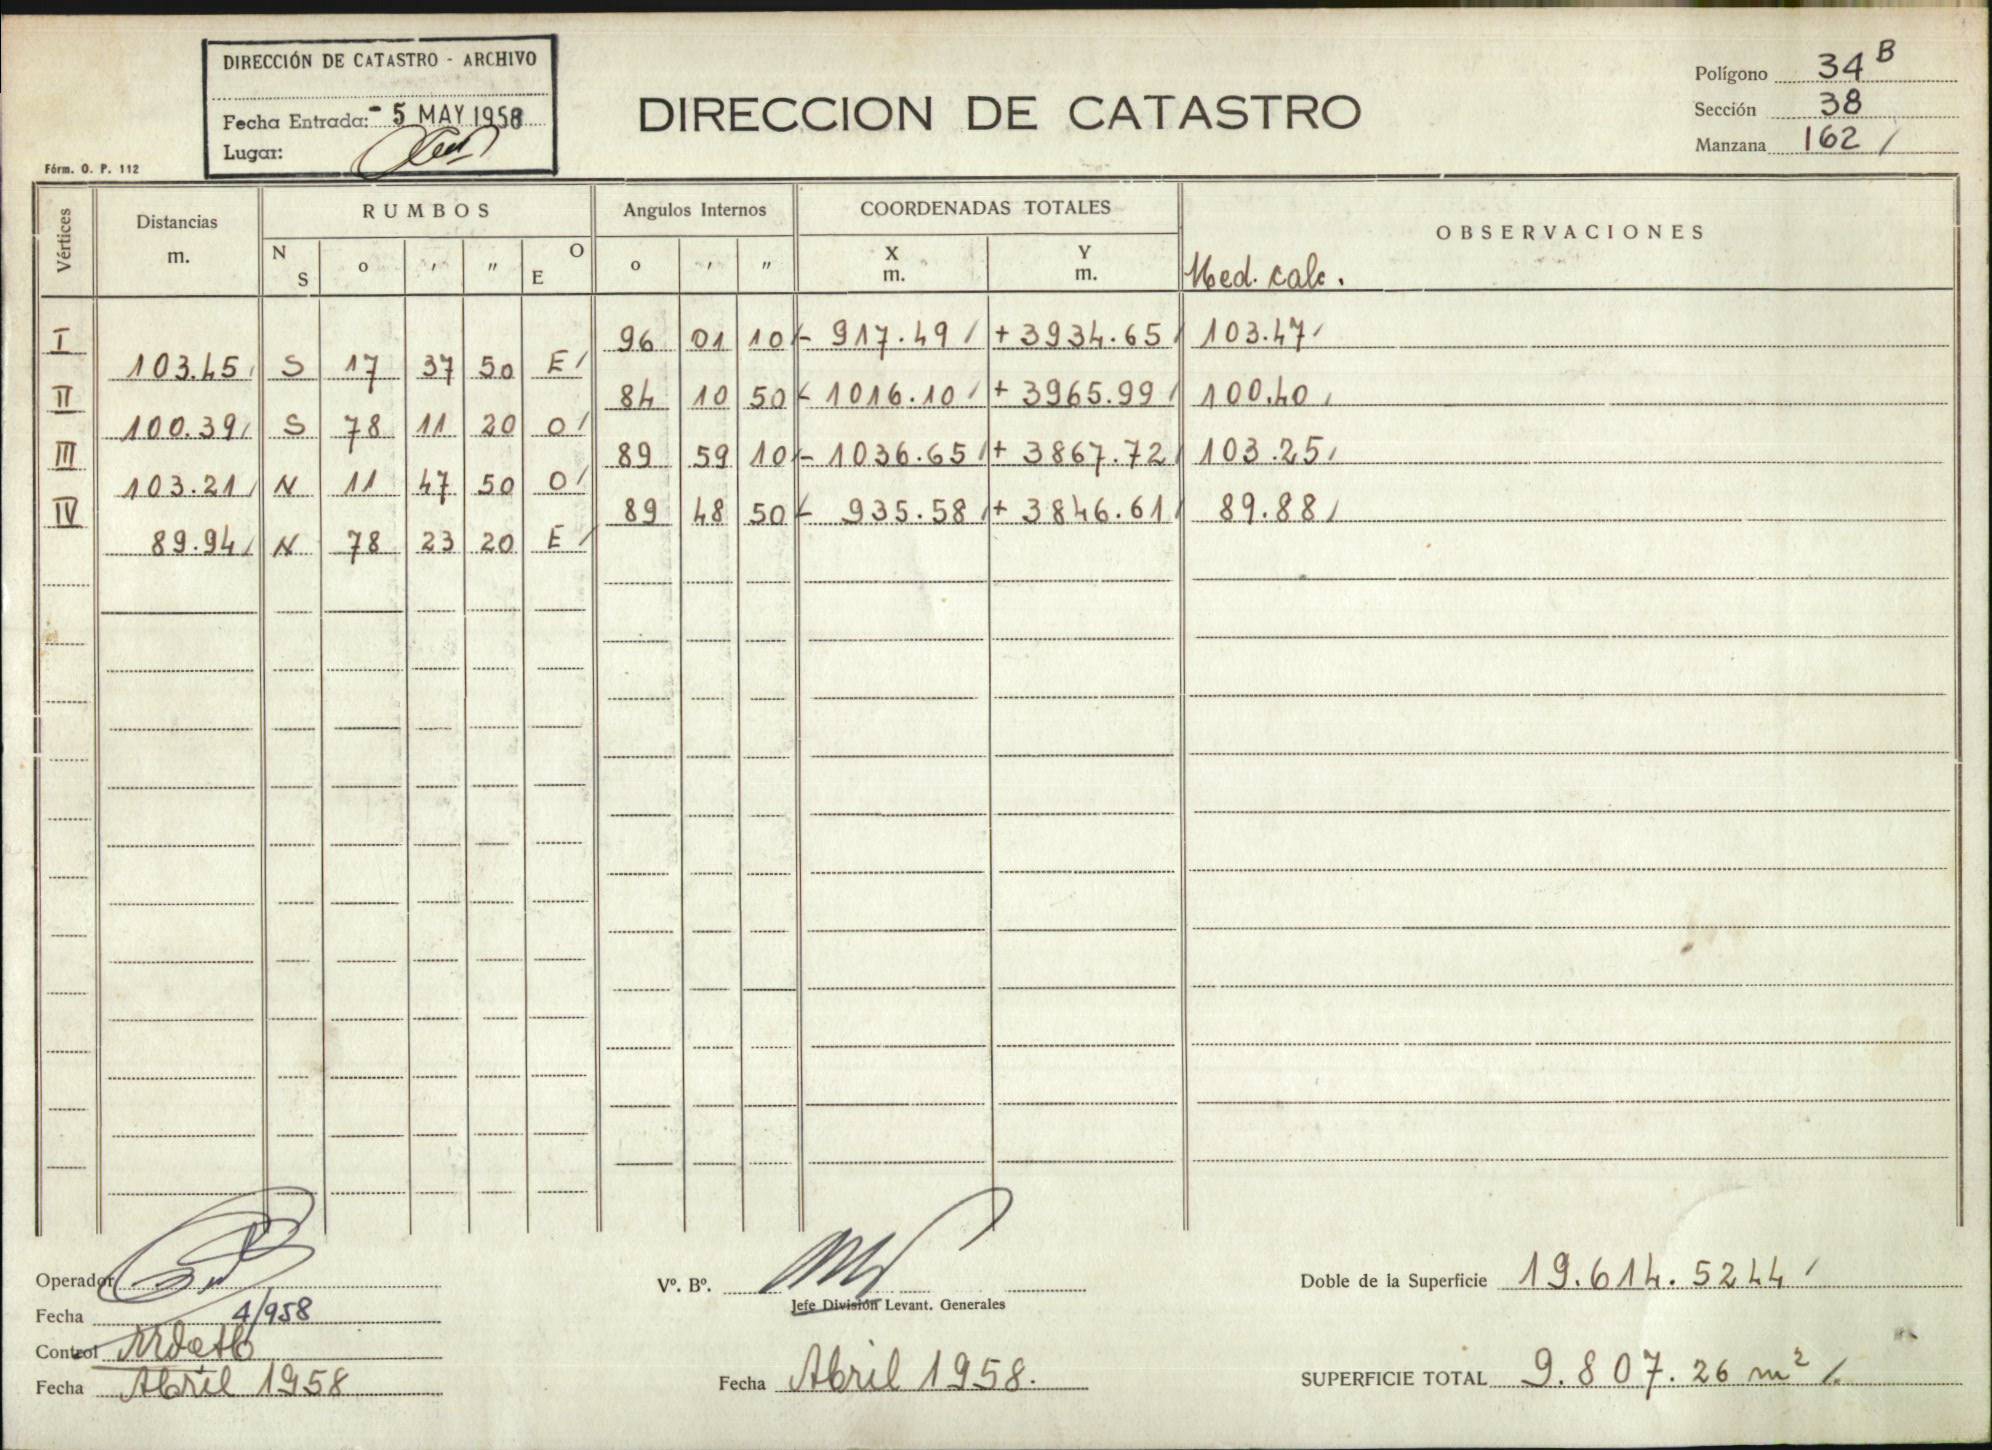 DIRECCIÓN DE CATASTRO - ARCHIVO
Fecha Entrada: - 5 MAY 1958
Lugar:
Fórm. O. P. 112
DIRECCION DE CATASTRO
Polígono 34 B
Sección 38
Manzana 162 /
Vértices Distancias m. RUMBOS N S o ' " O E Angulos Internos o ' " COORDENADAS TOTALES X m. Y m. OBSERVACIONES
Med. calc.
I 96 01 10 - 917.49 / + 3934.65 / 103.47 /
103.45 / S 17 37 50 E /
II 84 10 50 - 1016.10 / + 3965.99 / 100.40 /
100.39 / S 78 11 20 O /
III 89 59 10 - 1036.65 / + 3867.72 / 103.25 /
103.21 / N 11 47 50 O /
IV 89 48 50 - 935.58 / + 3846.61 / 89.88 /
89.94 / N 78 23 20 E /
Operador
Fecha 4/958
Control
Fecha Abril 1958
Vº. Bº.
Jefe División Levant. Generales
Fecha Abril 1958.
Doble de la Superficie 19.614.5244 /
SUPERFICIE TOTAL 9.807.26 m² /.